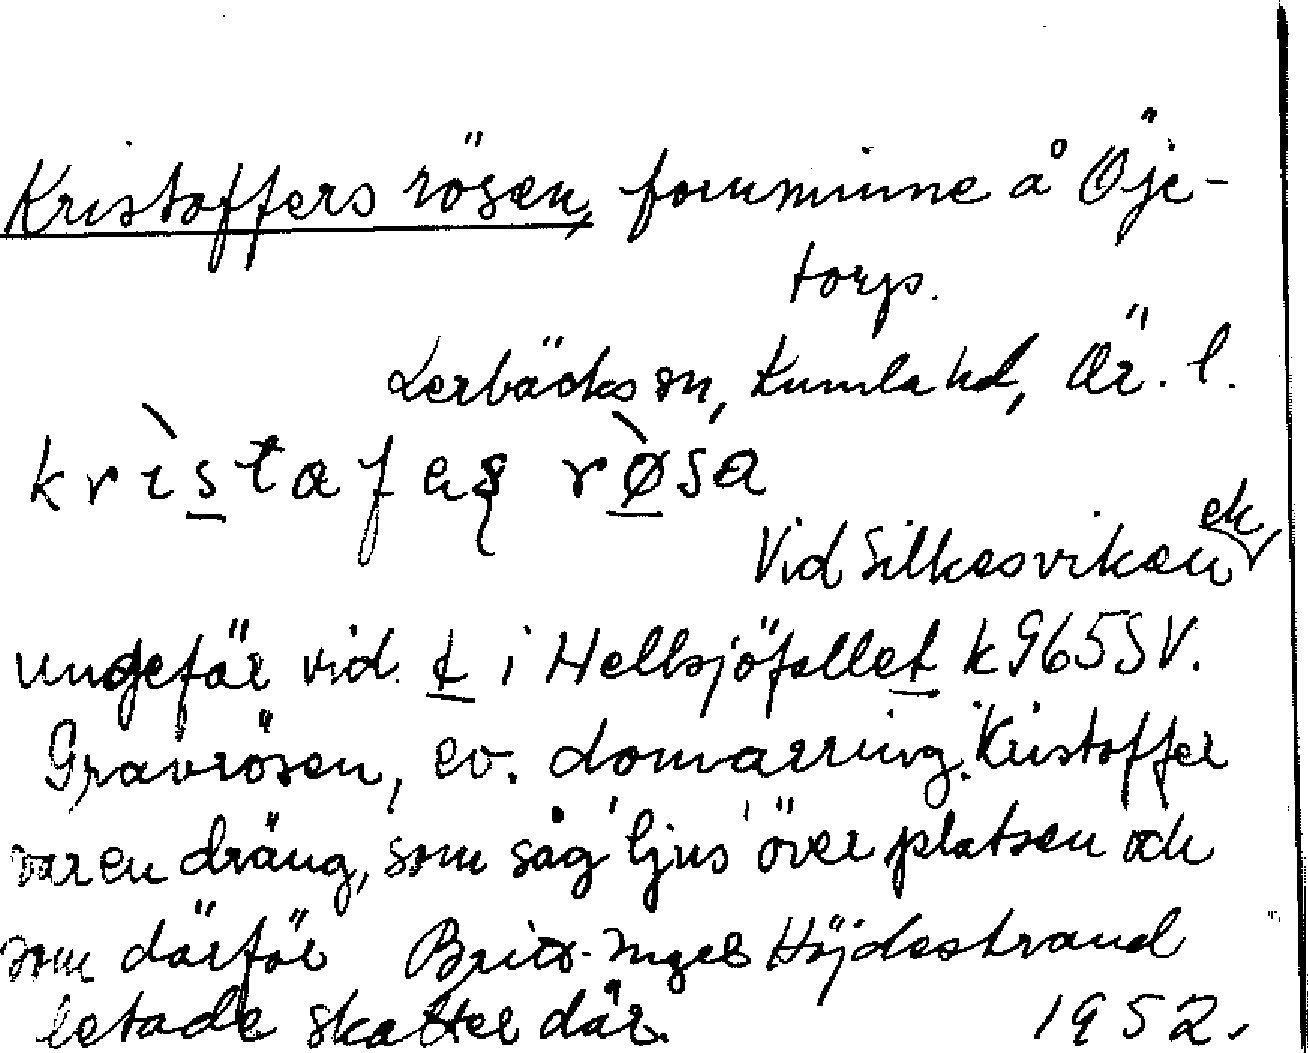 Kristoffers rösen, fornminne å Öje-
torp.
Lerbäcks sn, Kumla hd, Ör. l.
kristafeʂ røsa
Vid Silkesviken ek
ungefär vid t i Hellsjöfallet k965SV.
Gravrösen, ev. domarring. Kristoffer
var en dräng, som såg 'ljus' över platsen och
som därför Britt-Inger Höjdestrand
letade skatter där. 1952.